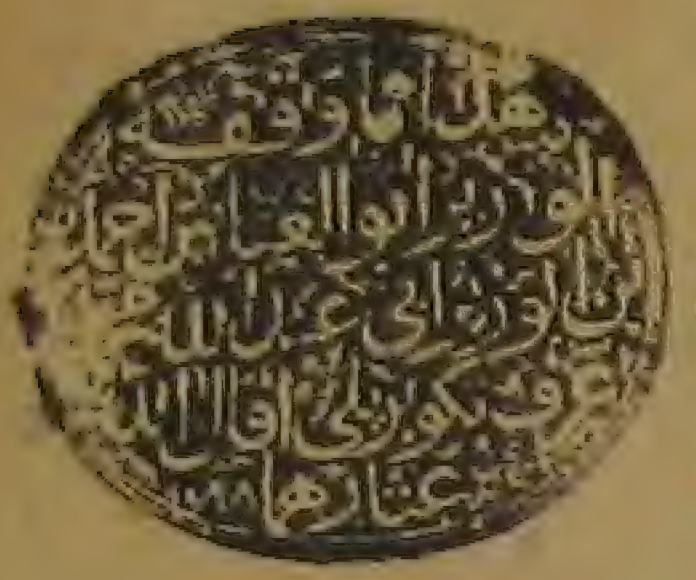 هذا ما وقفه
الوزير ابو العباس احمد
ابن الوزير ابي عبد الله محمد
عرف بكوبريلي اقال الله
عثارهما ١٠٨٨